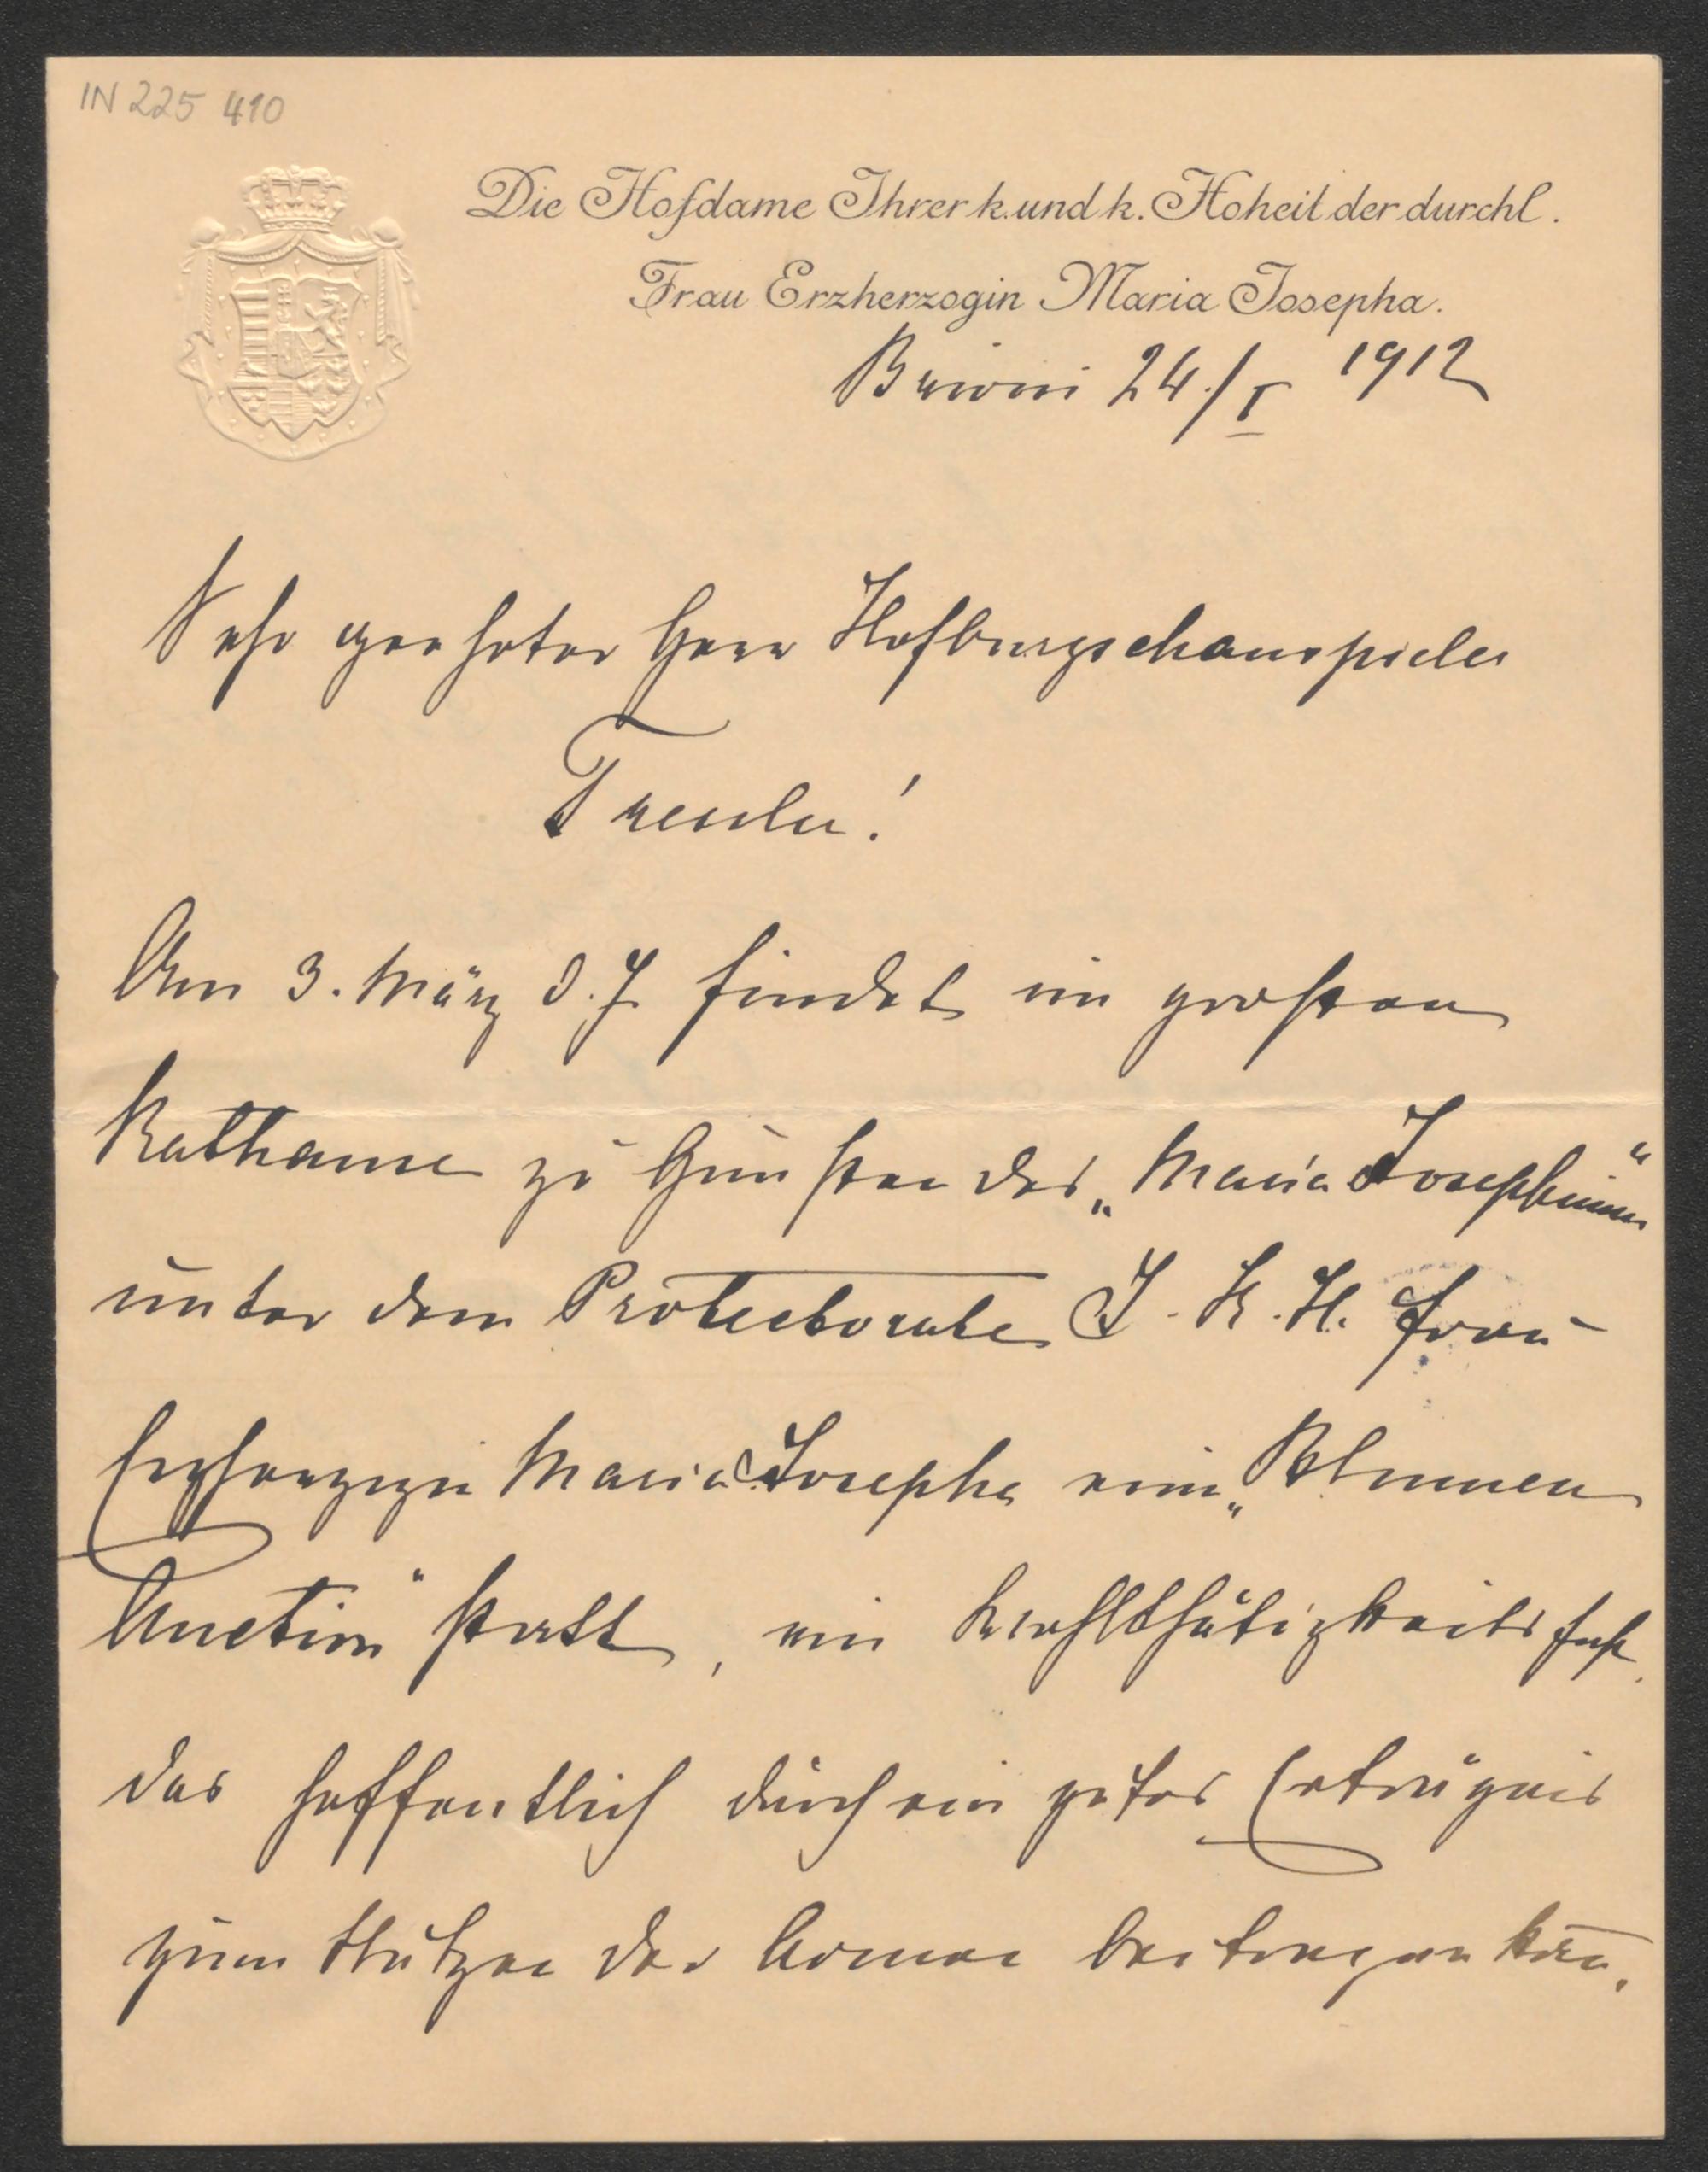 IN 225 410
Die Hofdame Ihrer k. und k. Hoheit der durchl.
Frau Erzherzogin Maria Josepha.
Brioni 24./I 1912
Sehr geehrter Herr Hofburgschauspieler
Tressler!
Am 3. März d. J. findet im großen
Rathause zu Gunsten des „Maria Josephinum“
unter dem Protectorate I. K. H. Frau
Erzherzogin Maria Josepha eine „Blumen
Auction“ statt, ein Wohlthätigkeitsfest
das hoffentlich durch ein gutes Erträgnis
zum Nutzen der Armen beitragen